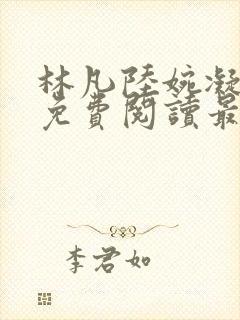 林凡陸婉凝
免費閱讀最
李君如